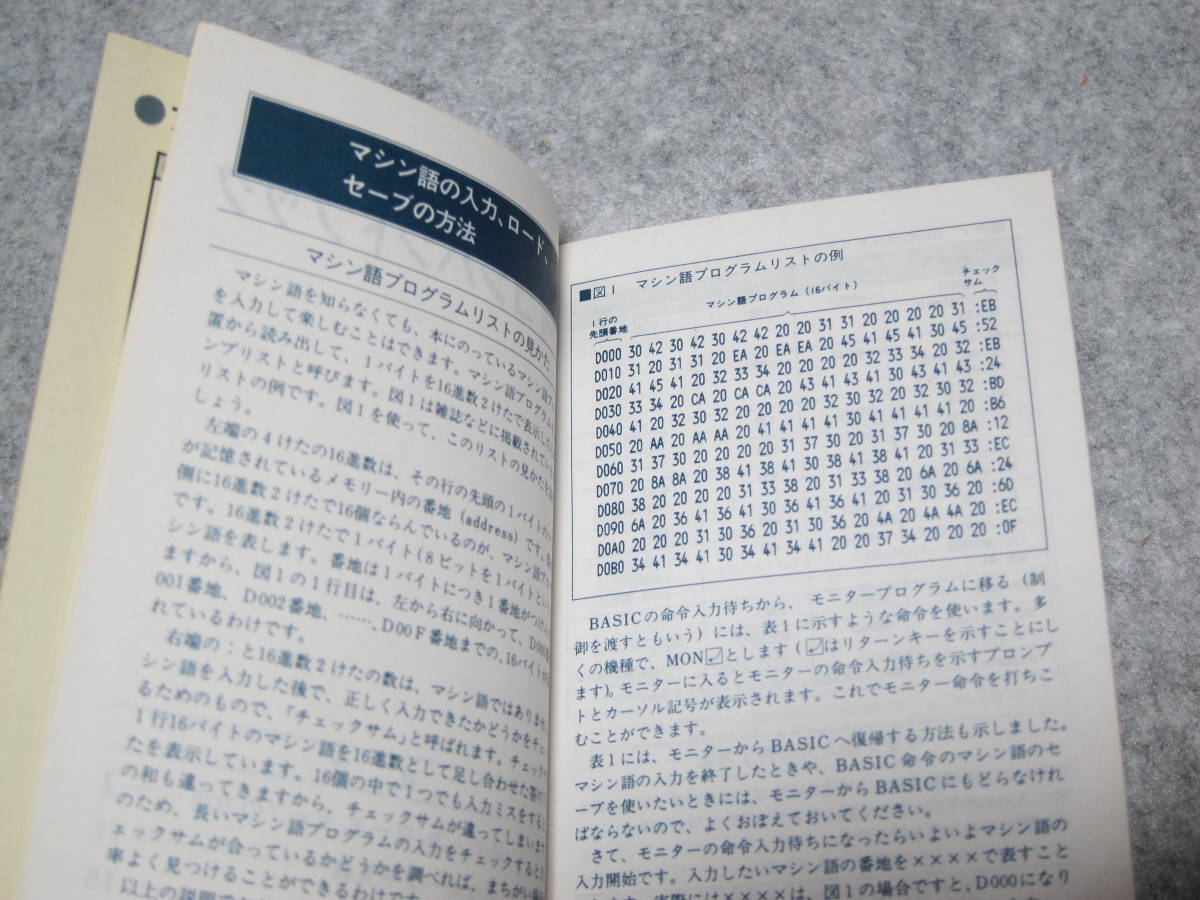 マシン語の入力、ロード、
セーブの方法
マシン語プログラムリストの見かた
マシン語を知らなくても、本にのっているマシン語プ
を入力して楽しむことはできます。マシン語プログラム
置から読み出して、1バイトを16進数2けたで表示した
ンプリストと呼びます。図1は雑誌などに掲載されている
リストの例です。図1を使って、このリストの見かたを
しょう。
左端の4けたの16進数は、その行の先頭の1バイトの
が記憶されているメモリー内の番地(address)です。
側に16進数2けたで16個ならんでいるのが、マシン語プロ
です。16進数2けたで1バイト(8ビットを1バイトとい
シン語を表します。番地は1バイトにつき1番地がつけ
ますから、図1の1行目は、左から右に向かって、D000番
001番地、D002番地、……、D00F番地までの、16バイトが
れているわけです。
右端の：と16進数2けたの数は、マシン語ではありませ
シン語を入力した後で、正しく入力できたかどうかをチェ
るためのもので、「チェックサム」と呼ばれます。チェック
1行16バイトのマシン語を16進数として足し合わせた答の
たを表示しています。16個の中で1つでも入力ミスをする
の和も違ってきますから、チェックサムが違ってしまいま
のため、長いマシン語プログラムの入力をチェックすると
ェックサムが合っているかどうかを調べれば、まちがい
率よく見つけることができるわけです。
以上の説明で
■図1 マシン語プログラムリストの例
1行の
先頭番地
マシン語プログラム(16バイト)
チェック
サム
D000 30 42 30 42 30 42 42 20 20 31 31 20 20 20 20 31 :EB
D010 31 20 31 31 20 EA 20 EA EA 20 45 41 45 41 30 45 :52
D020 41 45 41 20 32 33 34 20 20 20 20 32 33 34 20 32 :EB
D030 33 34 20 CA 20 CA CA 20 43 41 43 41 30 43 41 43 :24
D040 41 20 32 30 32 20 20 20 20 32 30 32 20 32 30 32 :BD
D050 20 AA 20 AA AA 20 41 41 41 41 30 41 41 41 41 20 :B6
D060 31 37 30 20 20 20 20 31 37 30 20 31 37 30 20 8A :12
D070 20 8A 8A 20 38 41 38 41 30 38 41 38 41 20 31 33 :EC
D080 38 20 20 20 20 31 33 38 20 31 33 38 20 6A 20 6A :24
D090 6A 20 36 41 36 41 30 36 41 36 41 20 31 30 36 20 :6D
D0A0 20 20 20 31 30 36 20 31 30 36 20 4A 20 4A 4A 20 :EC
D0B0 34 41 34 41 30 34 41 34 41 20 20 37 34 20 20 20 :0F
BASICの命令入力待ちから、モニタープログラムに移る(制
御を渡すともいう)には、表1に示すような命令を使います。多
くの機種で、MON↵とします(↵はリターンキーを示すことにし
ます)。モニターに入るとモニターの命令入力待ちを示すプロンプ
トとカーソル記号が表示されます。これでモニター命令を打ちこ
むことができます。
表1には、モニターからBASICへ復帰する方法も示しました。
マシン語の入力を終了したときや、BASIC命令のマシン語のセ
ーブを使いたいときには、モニターからBASICにもどらなけれ
ばならないので、よくおぼえておいてください。
さて、モニターの命令入力待ちになったらいよいよマシン語の
入力開始です。入力したいマシン語の番地を××××で表すこと
実際には××××は、図1の場合ですと、D000になり